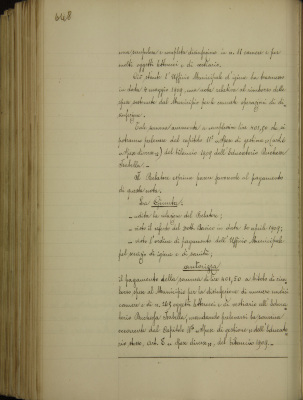 648
una completa e completa disinfezione in n. 11 camere e per
molti oggetti letterecci e di vestiario.
Ciò stante l'Ufficio Municipale d'igiene ha trasmesso
in data 8 maggio 1909 una nota relativa al rimborso delle
spese sostenute dal Municipio per le cennate operazioni di di-
sinfezione.
Tale somma ammonta a complessive lire 401,50 che si
potranno prelevare dal capitolo 11° "Spese di gestione"
"Spese diverse" del bilancio 1909 dell'Educatorio
Isabella.
Il Relatore esprime parere favorevole al pagamento
di questa nota.
La Giunta
- udita la relazione del Relatore;
- visto il referto del Dott. in data 20 aprile 1909;
- vista l'ordine di pagamento dell'Ufficio Municipale
pel servizio di igiene e di sanità;
autorizza
il pagamento della somma di lire 401,50 a titolo di rim-
borso spese al Municipio per la disinfezione di numero undici
camere e di n. 269 oggetti letterecci e di vestiario all'Educa-
torio Isabella; mandando prelevarsi la somma
occorrente dal Capitolo 11° "Spese di gestione" dell'Educato-
rio stesso, art. E "Spese diverse", del bilancio 1909.